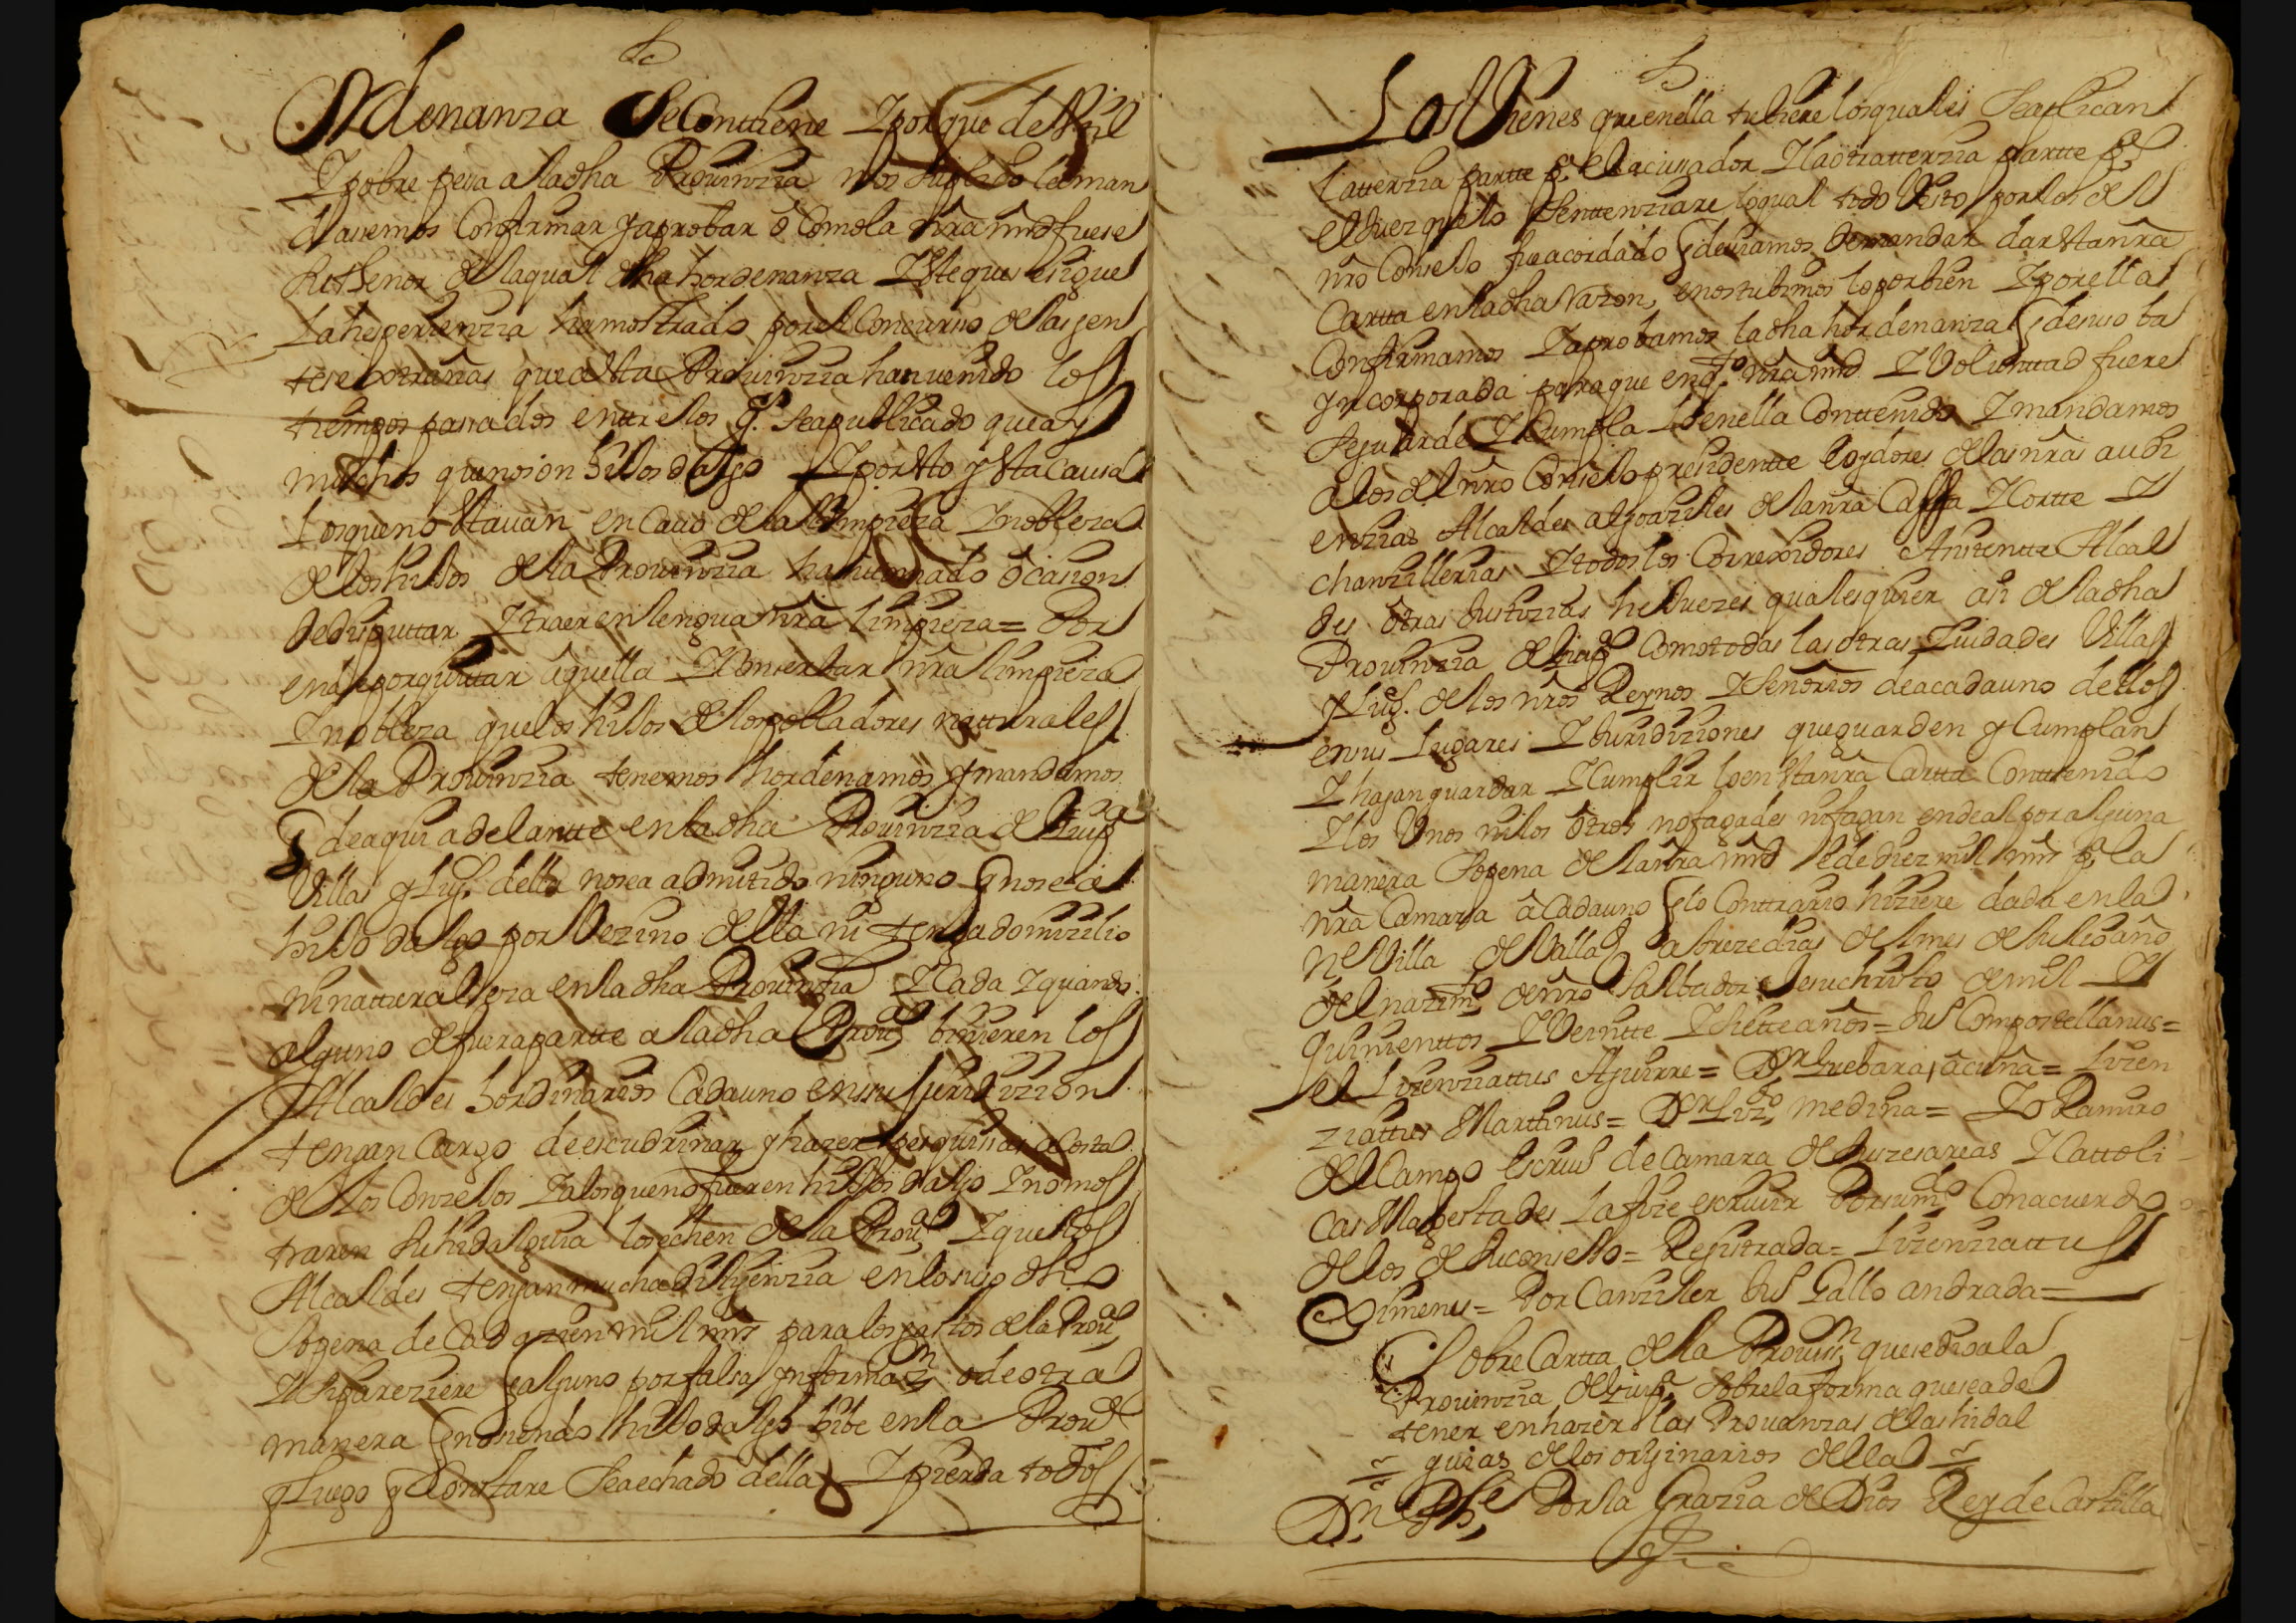 Ordenanza Se Conttiene Y porque de Util
Y pobre pera a la dha Provinzia nos suplico le man
dasemos Confirmar y aprobar ô Como la nrâ mrd fuese
Su thenor de la qual dha hordenanza Este que se sigue
La hesperienzia ha mostrado por el Concurso de las jen
tes extrañas que a esta Provinzia han venido los
tiempos pasados enttre los q.^s sea publicado que ay
muchos que no son hixos dalgo Y por esto y esta Causa
Los que no estauan en Cauo de la limpieza Y nobleza
de los hixos de la Provinzia ha ttomado ôcasion
de disputtar Y traer en lengua nrâ limpieza = Por
ende por quittar âquella Y Conserbar nrâ limpieza
Y nobleza que los hixos de los pobladores natturales
de la Provinzia tenemos hordenamos y mandamos
q de aqui adelantte en la dha Provinzia de Guip^a
Villas y lug.^s della no sea admitido ninguno q no sea
hixo dalgo por Vezino de ella ni tenga domizilio
ni natturaleza en la dha Provinzia Y Cada Y quando
alguno de fuera partte a la dha Prou^a binieren los
Alcaldes hordinarios Cada uno en su juridizion
tengan Cargo de escudriñar y hazer pesquisas a Costa
de los Conzejos Y a los que no fueren hixos dalgo Y no mos
traren su hidalguia los echen de la Prou^a Y que los
Alcaldes tengan mucha dilijenzia en lo suso dho
So pena de Cada zien mil mrs para los gastos de la Prou^a
Y si pareziere q alguno por falsa ynformaz^n o de otra
manera q no siendo hixo dalgo bibe en la Prou^a
y luego q Constare sea echado della Y pierda todos
Los Vienes que en ella tubiere los quales se aplican
La tterzia partte p^a el acusador Y la otra tterzia partte p^a
el Juez que lo senttenziare lo qual tdo Visto por los del
nrô Consejo fue acordado q deuiamos de mandar dar esta nrâ
Cartta en la dha razon, e nos tubimos lo por bien Y por ella
Confirmamos Y aprobamos la dha hordenanza q de suso ba
yncorporada para que en q^to nrâ mrd Y Voluntad fuere
se guarde Y Cumpla lo en ella Conttenido Y mandamos
a los del nrô Consejo presidentte e oydores de las nrâs audi
enzias Alcaldes alguaziles de la nrâ Cassa Y Cortte Y
chanzillerias Y todos los Correxidores Asistentte Alcal
des otras Justizias he Juezes qualesquier asi de la dha
Provinzia de Guip^a Como todas las otras Ziudades Villas
y Lug.^s de los nrôs Reynos Y Señorios de a cada uno dellos
en sus Lugares Y Juridiziones que guarden y Cumplan
Y hagan guardar Y Cumplir lo en esta nrâ Cartta Conttenido
Y los Unos ni los ôtros no fagades ni fagan ende al por alguna
manera so pena de la nrâ mrd e de diez mil mrs p^a la
nrâ Camara â Cada uno q lo Conttrario hiziere dada en la
N^e Villa de Vallad^d a treze dias del mes de Julio año
del nazim^to de nrô Salbador Jesuchristo de mil Y
quinienttos Y Veintte Y Siette años = Jus Compostellanus =
el Lizenziattus Aguirre = D^or Guebara, acuña = Lizen
ziattus Marttinus = D^or Liz^do medina = Yo Ramiro
del Campo escriu^o de Camara de sus zesareas Y Cattoli
cas Magestades La fize escriuir Por su m^do Con acuerdo
de los de su Consejo = Registrada = Lizenziattus
Ximenes = Por Canziller Jus Gallo andrada =
Sobre Cartta de la Prouiss^n que se dio a la
Provinzia de Guip^a Sobre la forma que se a de
tener en hazer las Prouanzas de las hidal
guias de los orijinarios della
D^n Ph^e Por la Grazia de Dios Rey de Castilla